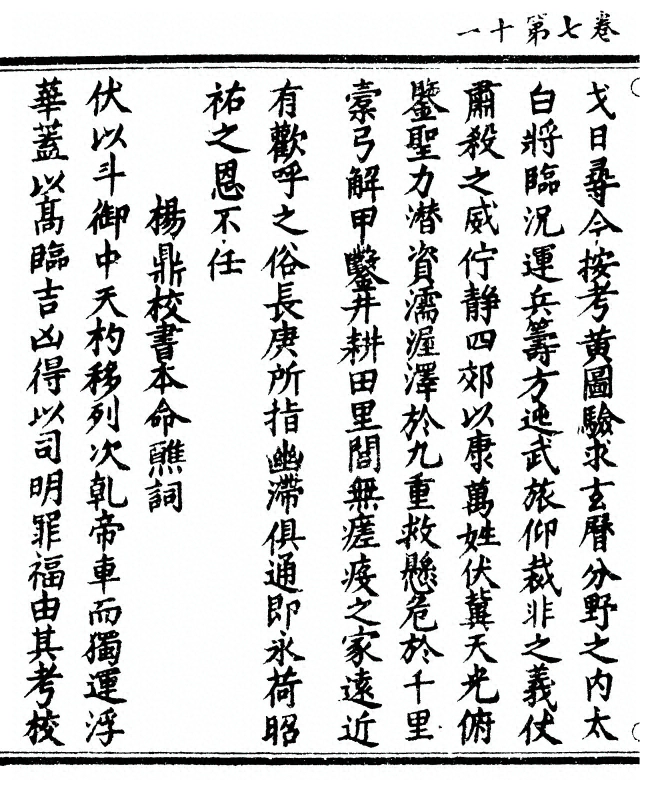 卷七第十一
戈日尋今按考黃圖驗求玄曆分野之內太
白將臨況運兵籌方迤武旅仰裁非之義伏
肅殺之威佇靜四郊以康萬姓伏冀天光俯
鑒聖力潛資濡渥澤於九重救懸危於千里
櫜弓解甲鑿井耕田里閭無瘥疫之家遠近
有歡呼之俗長庚所指幽滯俱通即永荷昭
祐之恩不任
楊鼎校書本命醮詞
伏以斗御中天杓移列次乹帝車而獨運浮
華蓋以髙臨吉凶得以司明罪福由其考校